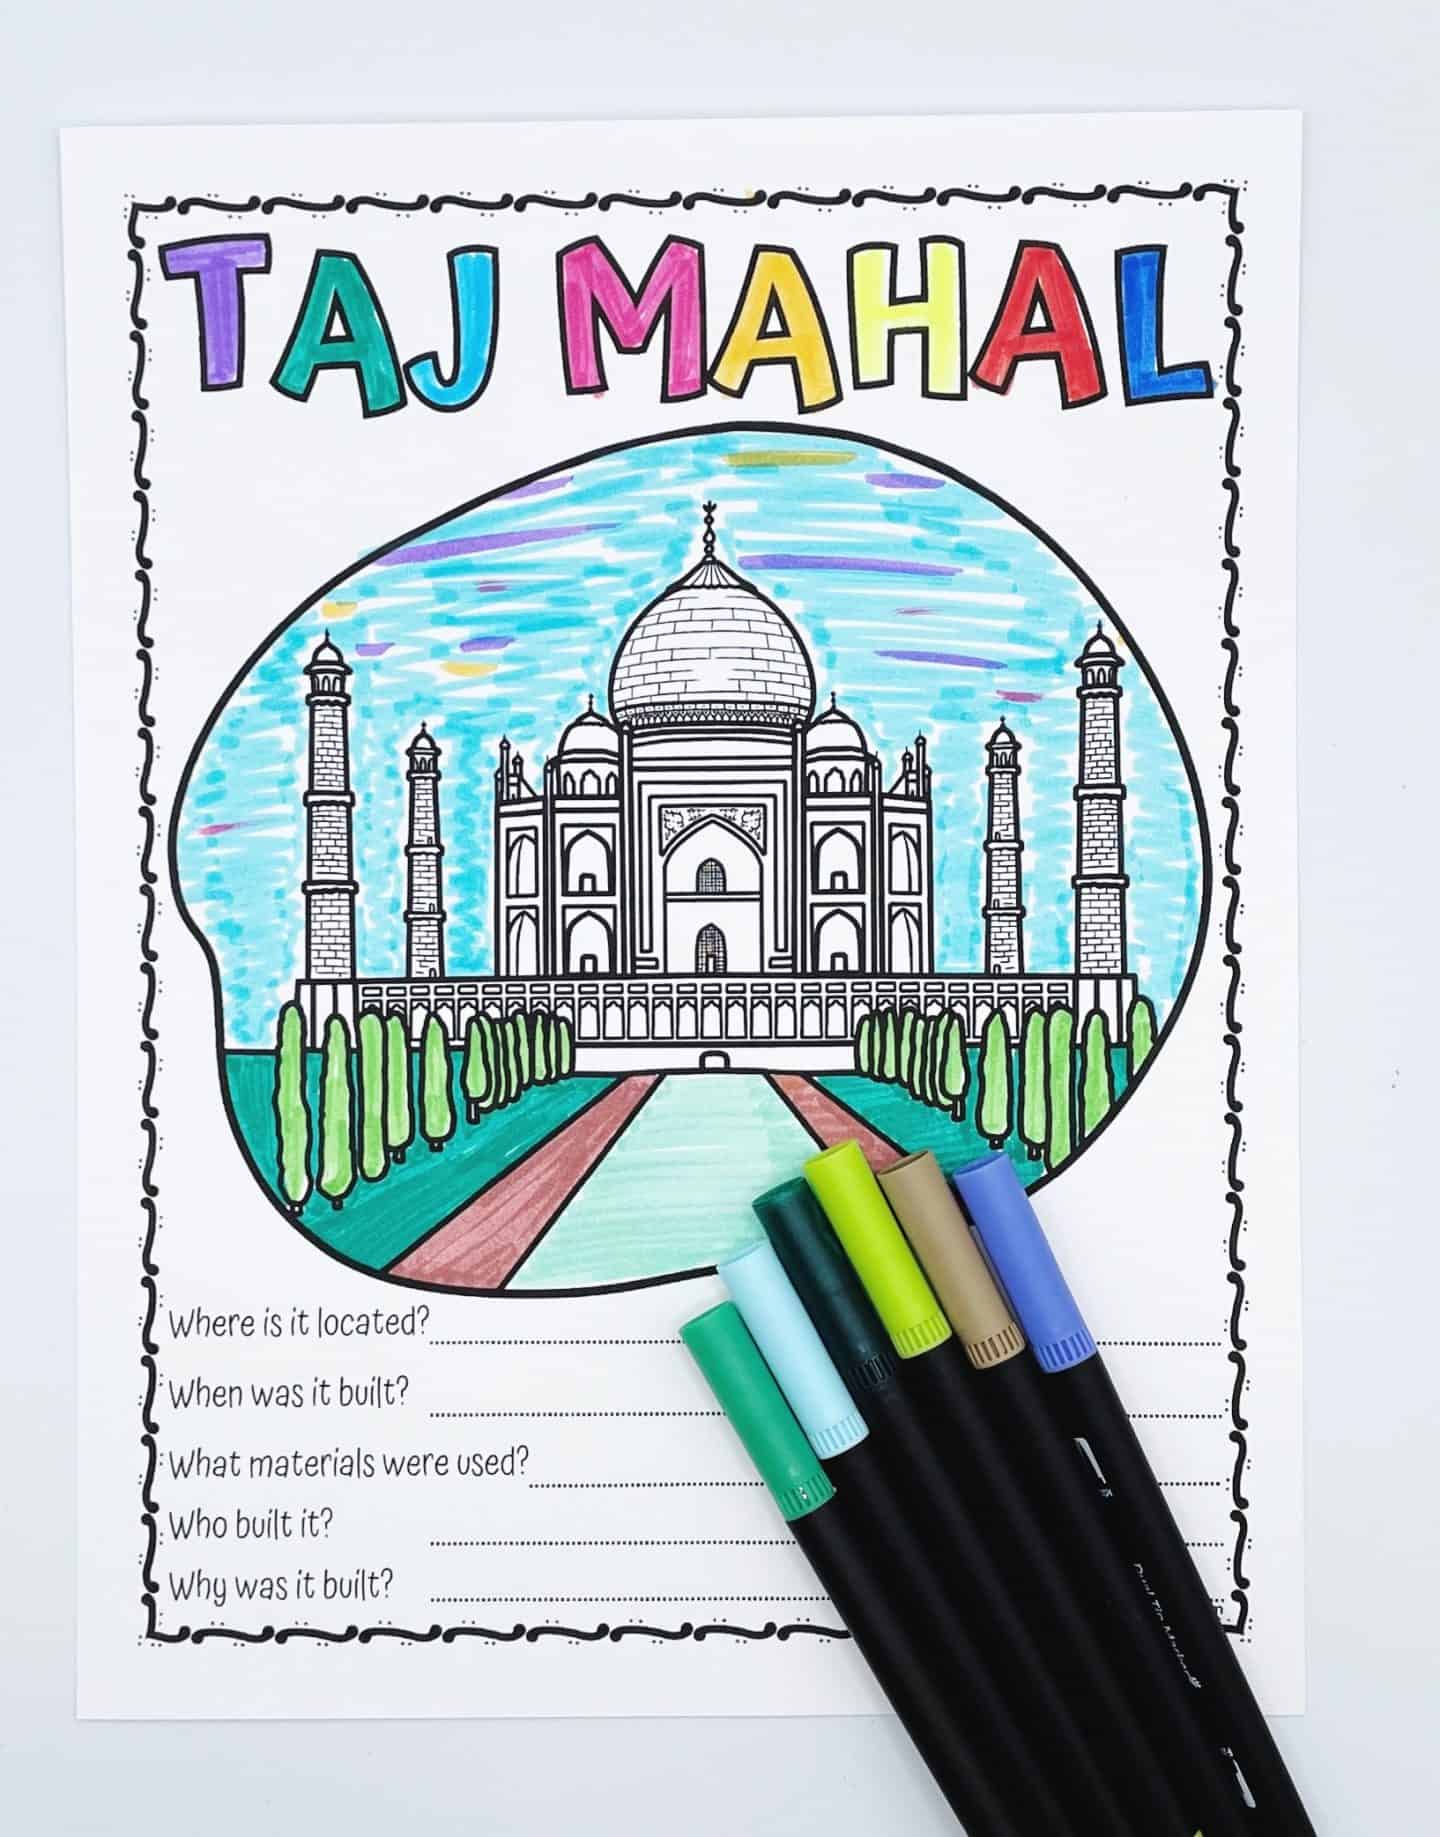 TAJ MAHAL
Where is it located?
When was it built?
What materials were used?
Who built it?
Why was it built?
Dual Tip Marker